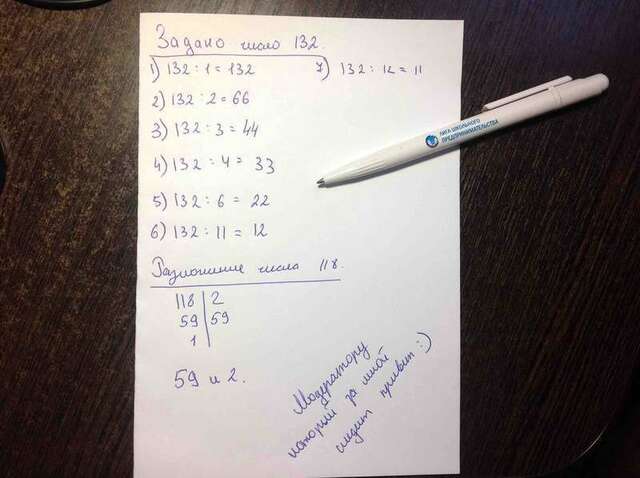 Задано число 132.
1) 132 : 1 = 132
2) 132 : 2 = 66
3) 132 : 3 = 44
4) 132 : 4 = 33
5) 132 : 6 = 22
6) 132 : 11 = 12
7) 132 : 12 = 11
Разложение числа 118.
118 | 2
59 | 59
1 |
59 и 2.
Модератору
который за мной
следит привет :)
ЛИГА ШКОЛЬНОГО
ПРЕДПРИНИМАТЕЛЬСТВА